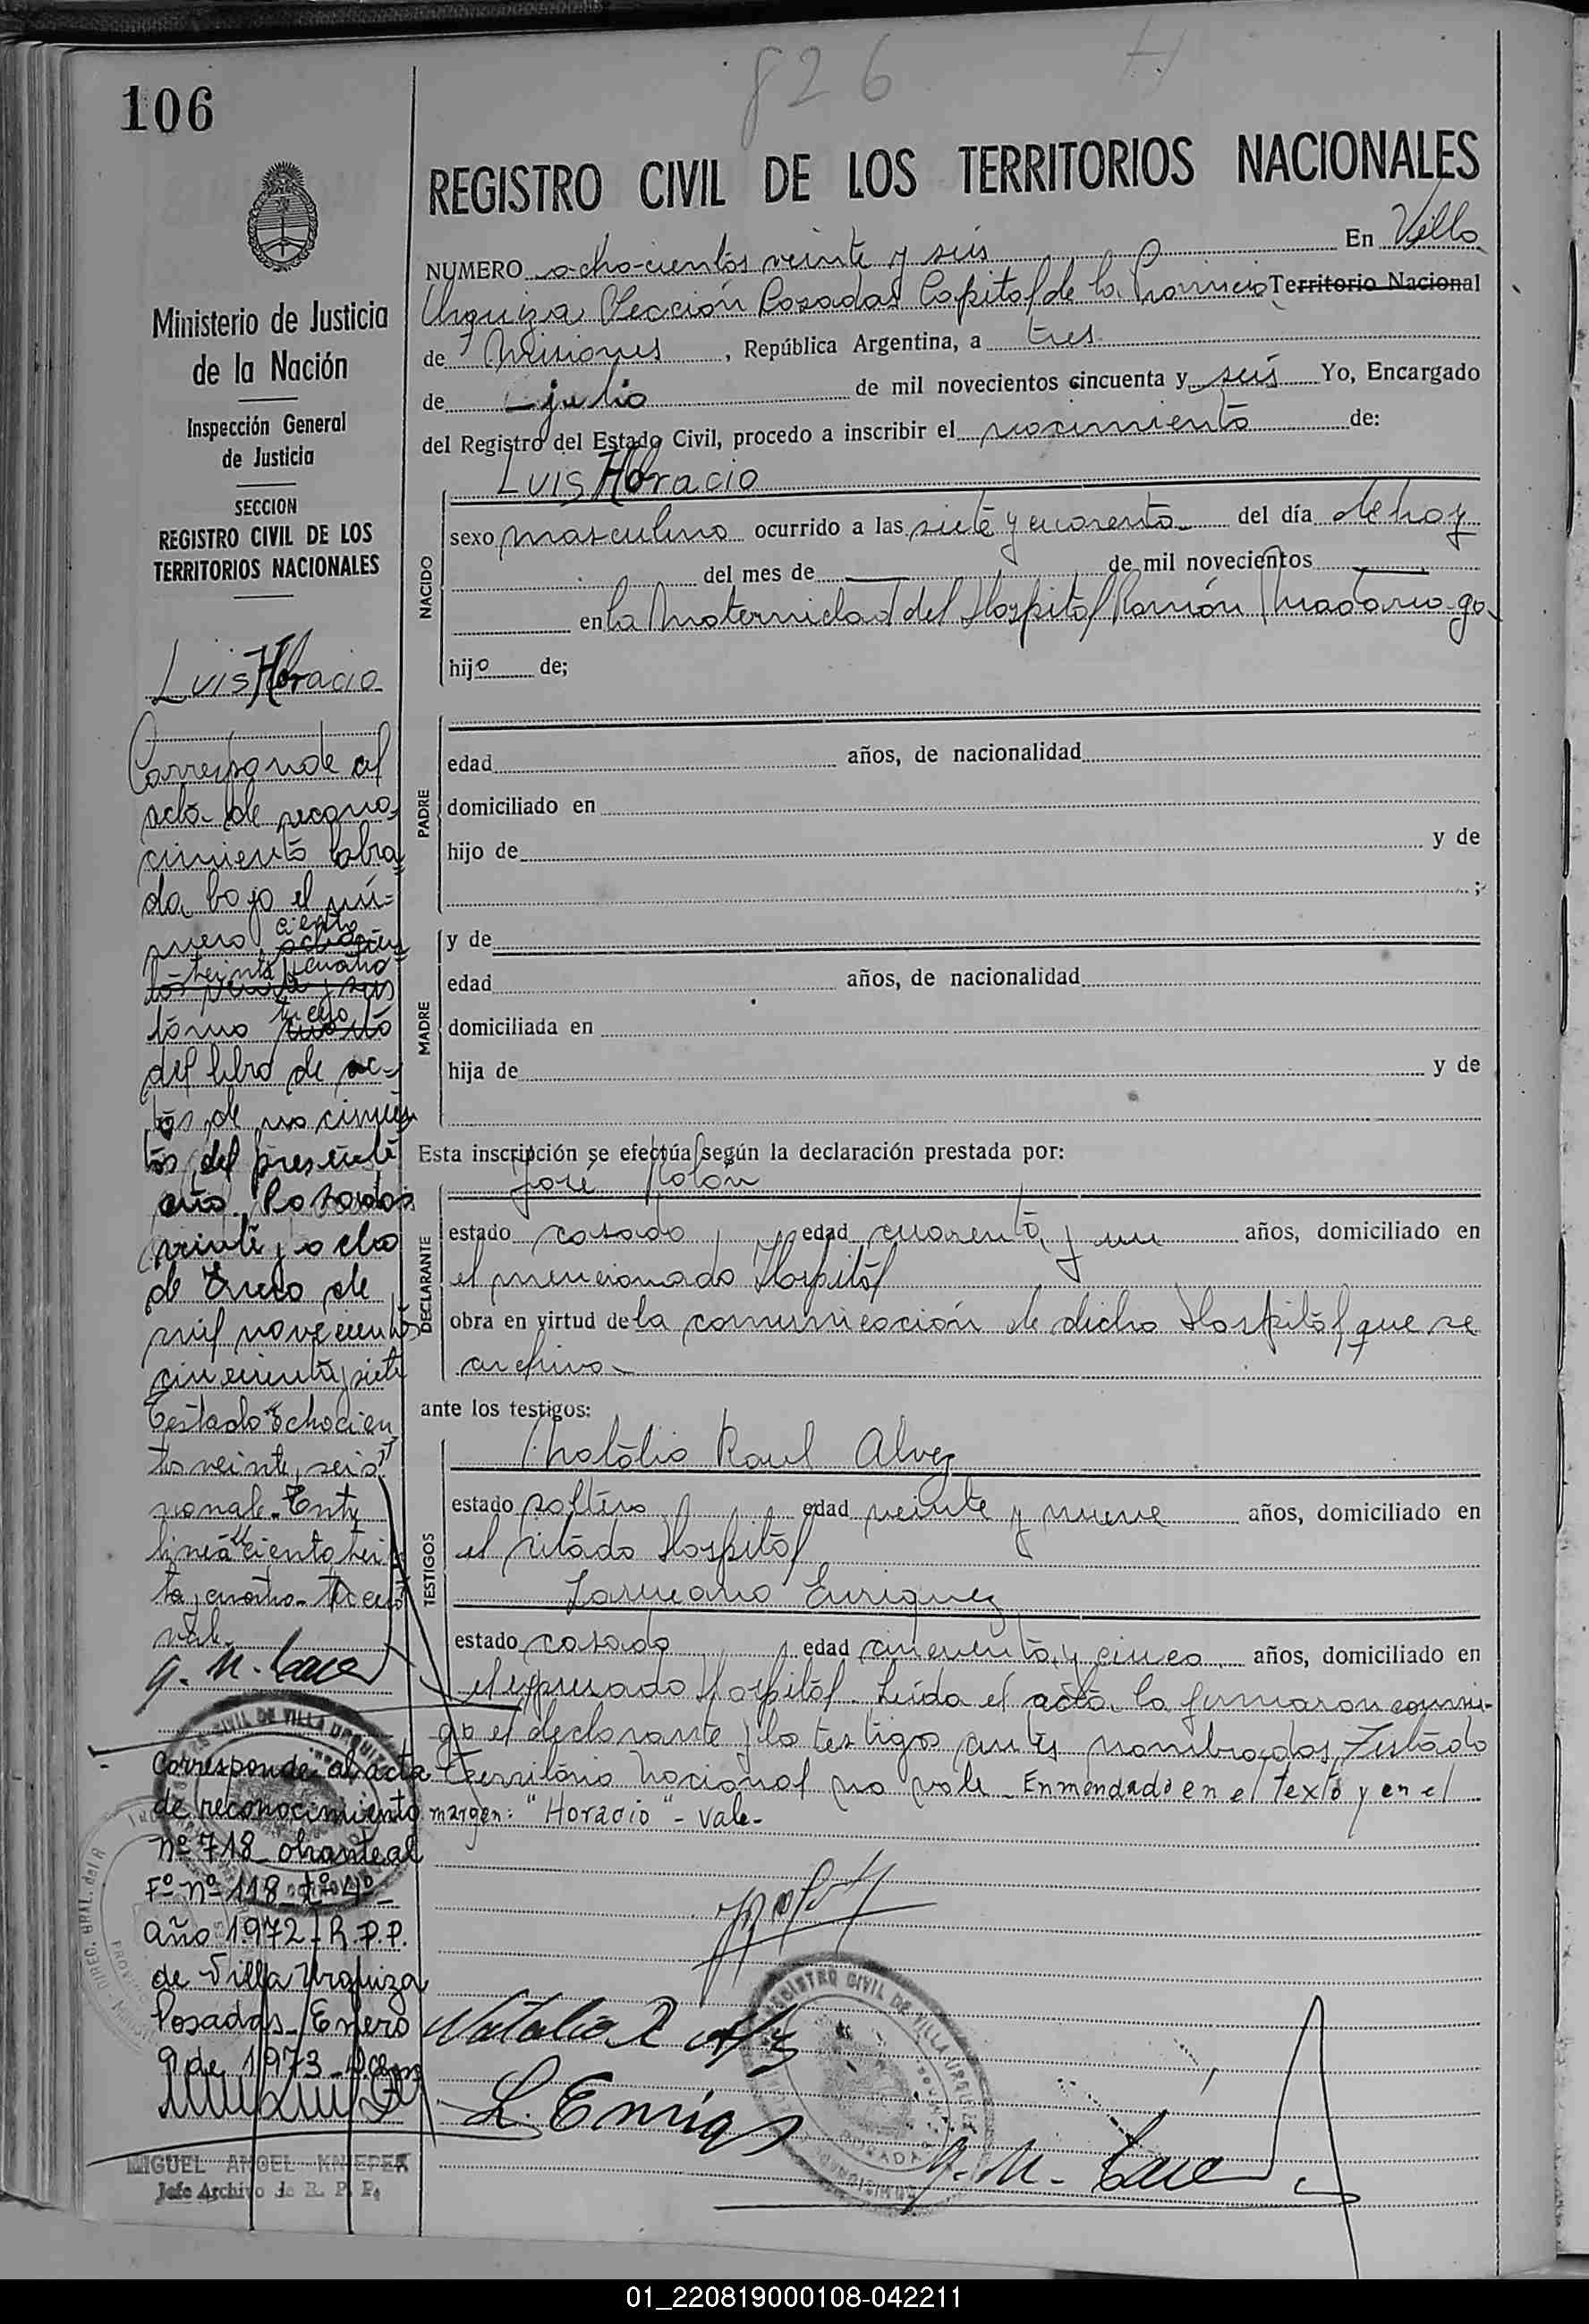 826
106
REGISTRO CIVIL DE LOS TERRITORIOS NACIONALES
NUMERO ochocientos veinte y seis En Villa
Urquiza Sección Posadas Capital de la Provincia Territorio Nacional
de Misiones, República Argentina, a tres
de julio de mil novecientos cincuenta y seis Yo, Encargado
del Registro del Estado Civil, procedo a inscribir el nacimiento de:
Luis Horacio
NACIDO
sexo masculino ocurrido a las siete y cuarenta del día de hoy
del mes de de mil novecientos
en la Maternidad del Hospital Ramón Madariaga
hijo de;
PADRE
edad años, de nacionalidad
domiciliado en
hijo de y de
;
MADRE
y de
edad años, de nacionalidad
domiciliada en
hija de y de
Esta inscripción se efectúa según la declaración prestada por:
José Rolón
DECLARANTE
estado casado, edad cuarenta y un años, domiciliado en
el mencionado Hospital
obra en virtud de la comunicación de dicho Hospital que se
archiva
ante los testigos:
Natalio Raul Alvez
TESTIGOS
estado soltero edad veinte y nueve años, domiciliado en
el citado Hospital
Enriquez
estado casado edad cincuenta y cinco años, domiciliado en
el expresado Hospital. Leída el acta la firmaron conmi-
go el declarante y los testigos antes nombrados, Testado
Territorio Nacional no vale. Enmendado en el texto y en el
margen: "Horacio" - Vale-
Natalio R Alvez
L. Enriqz
Ministerio de Justicia
de la Nación
Inspección General
de Justicia
SECCION
REGISTRO CIVIL DE LOS
TERRITORIOS NACIONALES
Luis Horacio
Corresponde al
acta de recono-
cimiento labra
da bajo el nú-
ciento
mero ochocien
treinta y cuatro
tos veinte y seis
tercero
tomo cuarto
del libro de ac-
tas de nacimien
tos del presente
año. Posadas
veinte y ocho
de Enero de
mil novecientos
cincuenta y siete
Testado "ochocien
tos veinte y seis"
no vale. Entre
linea "ciento trein
ta y cuatro - tercero
vale.
REGISTRO CIVIL DE VILLA URQUIZA
Corresponde al acta
de reconocimiento
Nº 718 obrante al
Fº nº 118 - tº 4º -
año 1.972 - R.P.P.
de Villa Urquiza
Posadas - Enero
9 de 1973
MIGUEL ANGEL KNIEPER
Jefe Archivo de R. P. P.
REGISTRO CIVIL DE VILLA URQUIZA
POSADAS
01_220819000108-042211